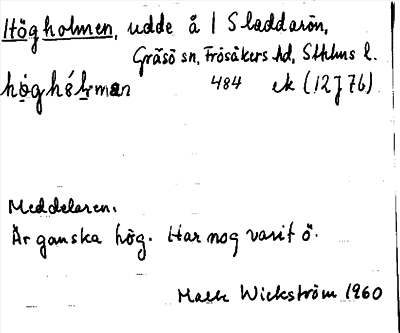 Högholmen, udde å 1 Sladdarön,
Gräsö sn, Frösåkers hd, Sthlms l.
484 ek (12J7b)
Meddelaren.
Är ganska hög. Har nog varit ö.
Wickström 1960